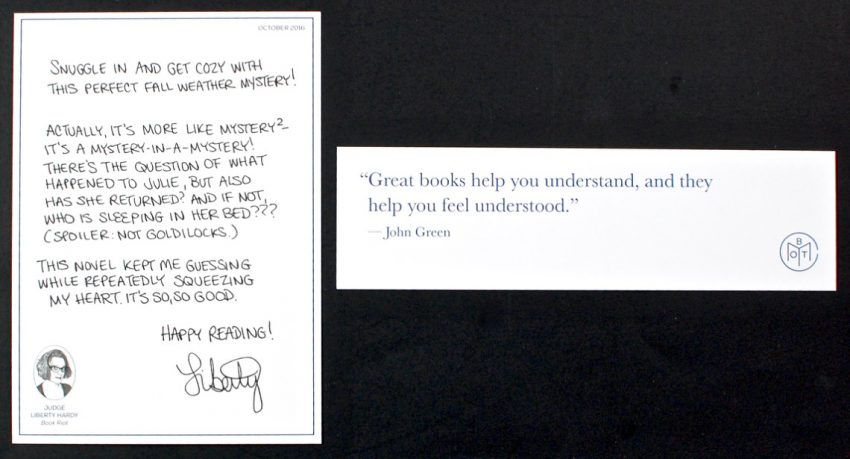 OCTOBER 2016
SNUGGLE IN AND GET COZY WITH
THIS PERFECT FALL WEATHER MYSTERY!
ACTUALLY, IT'S MORE LIKE MYSTERY²-
IT'S A MYSTERY-IN-A-MYSTERY!
THERE'S THE QUESTION OF WHAT
HAPPENED TO JULIE, BUT ALSO
HAS SHE RETURNED? AND IF NOT,
WHO IS SLEEPING IN HER BED???
(SPOILER: NOT GOLDILOCKS.)
THIS NOVEL KEPT ME GUESSING
WHILE REPEATEDLY SQUEEZING
MY HEART. IT'S SO, SO GOOD.
HAPPY READING!
Liberty
JUDGE
LIBERTY HARDY
Book Riot
“Great books help you understand, and they
help you feel understood.”
— John Green
B
O T
M